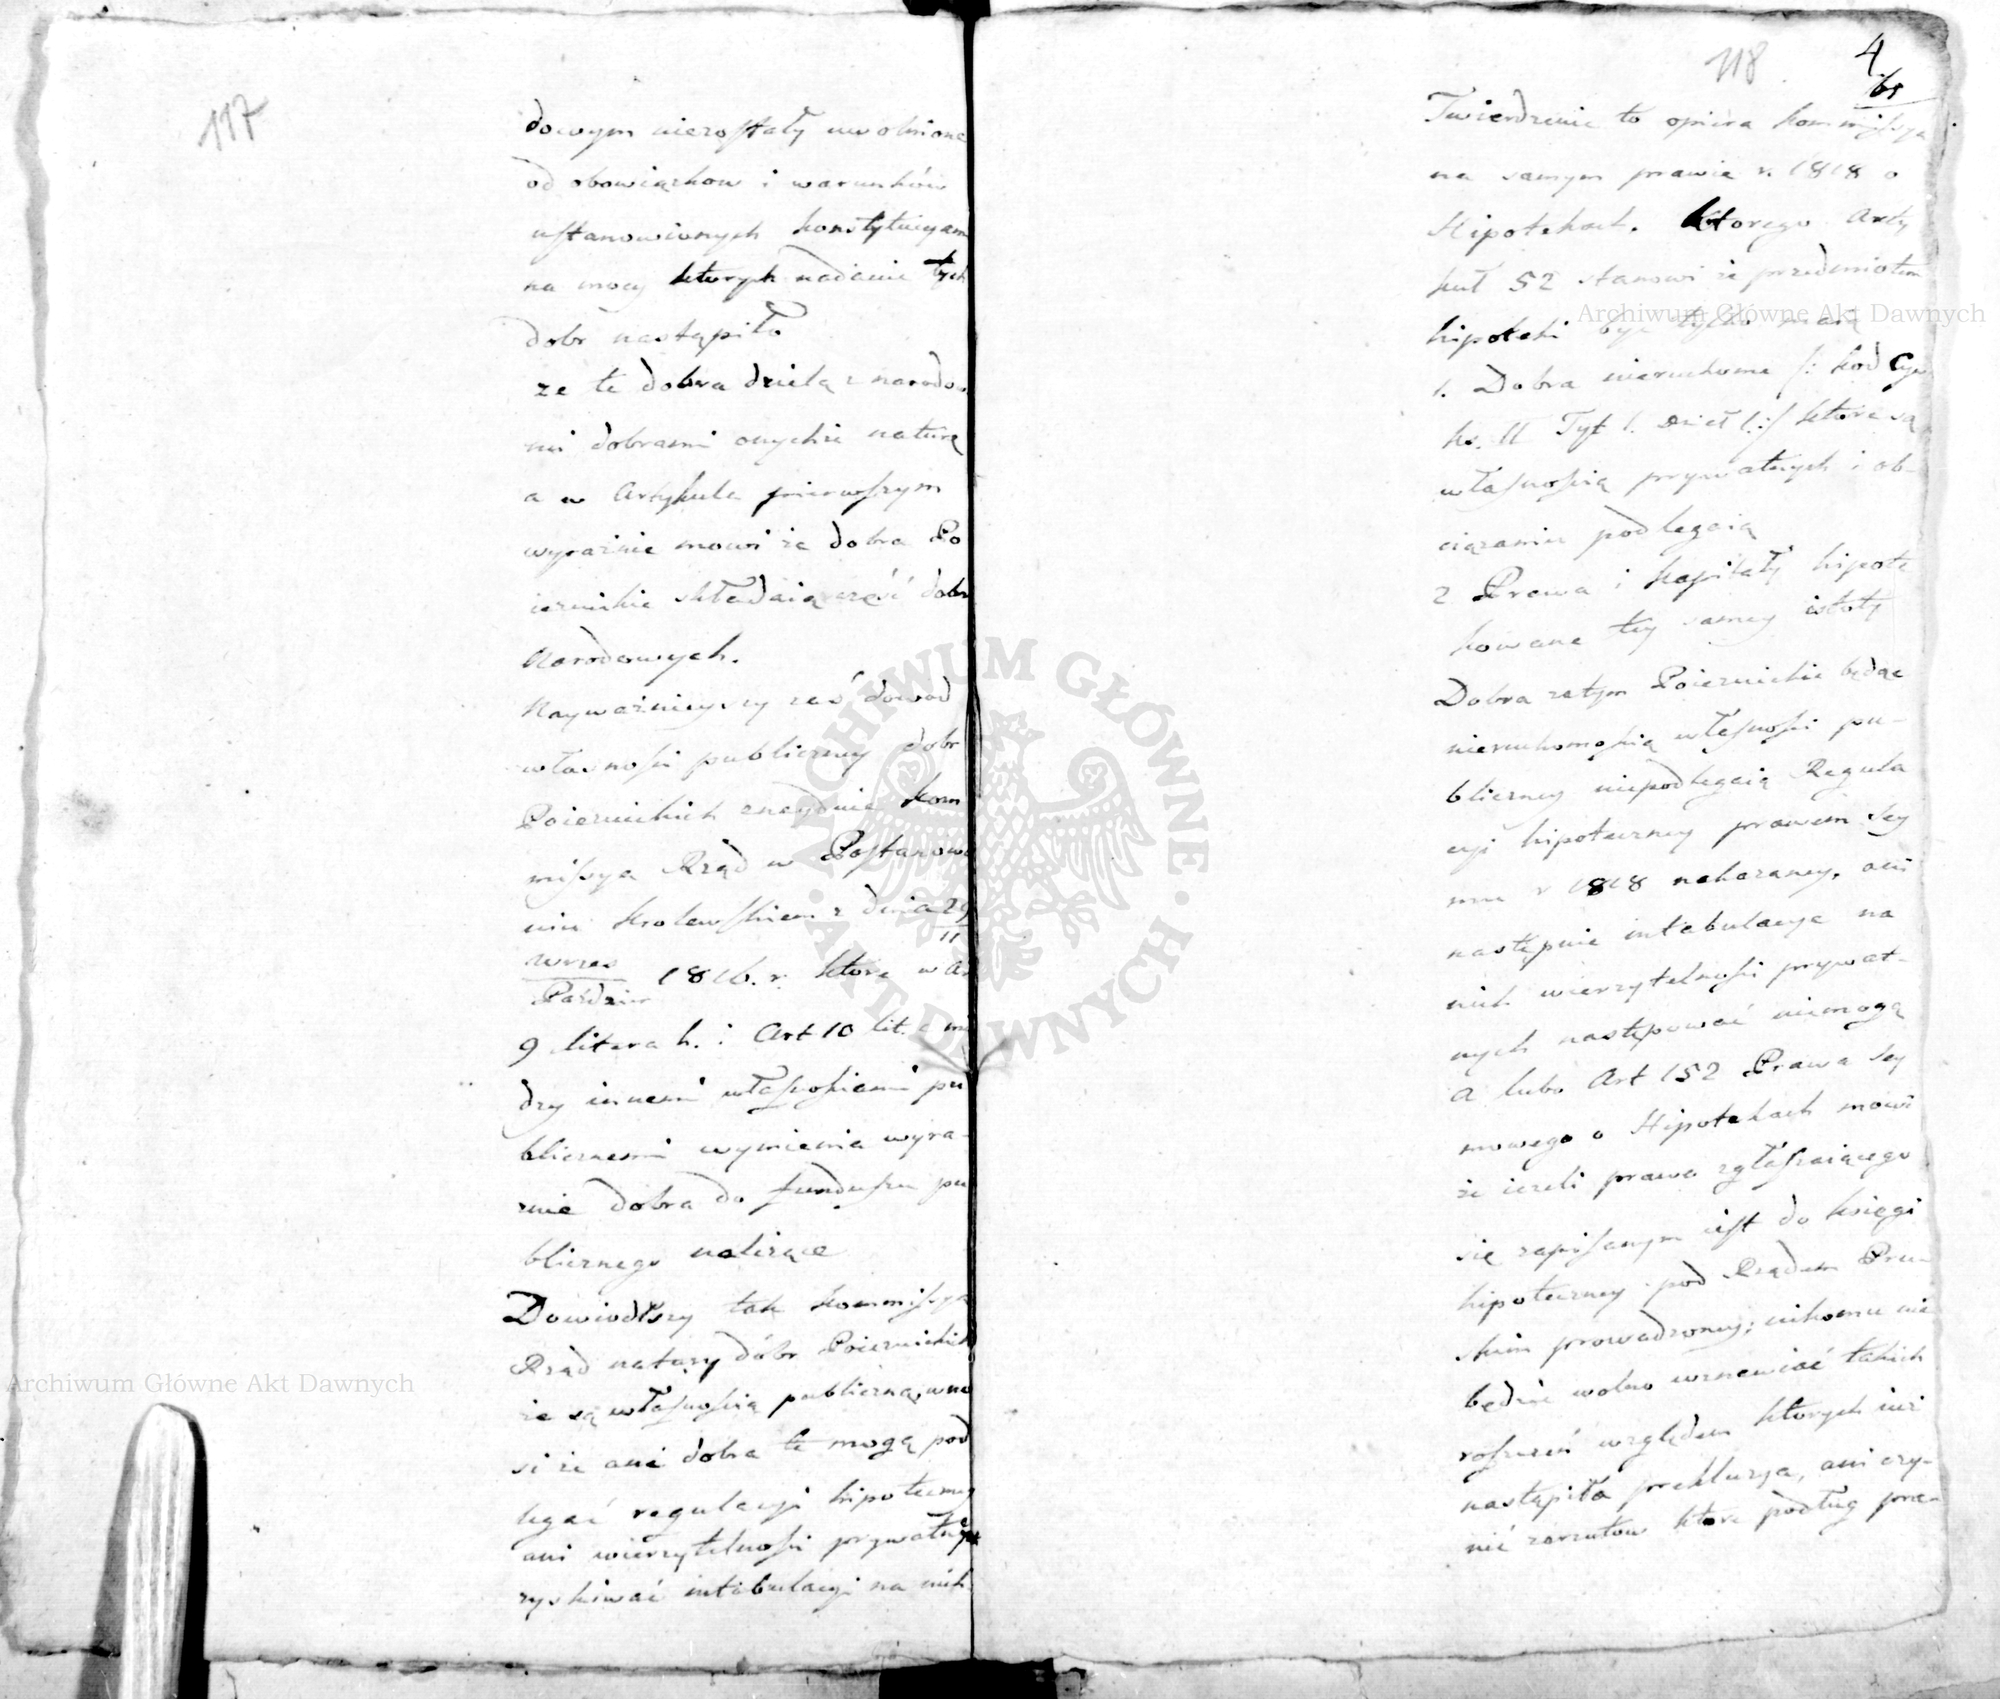 117
dowym niezostały uwolnione
od obowiązkow i warunków
ustanowionych konstytucyam
na mocy ktorych nadanie tych
dobr nastąpiło
ze te dobra dzielą z narodow
mi dobrami onychże naturę
a w Artykule pierwszym
wyraźnie mowi że dobra Po
iezuickie składaią część dobr
Narodowych.
Nayważnieyszy zaś dowod
własności publiczney dobr
Poiezuickich znayduie Kom
missya Rząd w Postanowe
niu Krolewskiem z dnia 29/11
Wrzes/Paździer 1816. r. ktore w Ar
9 litera h. i Art 10 lit. c mię
dzy innemi własnościami pu
blicznemi wymienia wyra-
znie dobra do funduszu pu
blicznego należące
Dowiodłszy tak Kommissya
Rząd natury dóbr Poiezuickich
że są własnością publiczną, wno
si że ani dobra te mogą pod
legać regulacyi hipoteczney
ani wierzytelności prywatnych
zyskiwać intabulacyi na nich.
118
4
Twierdzenie to opiera Kommissya
na samym prawie r. 1818 o
Hipotekach. Ktorego Arty
kuł 52 stanowi że przedmiotem
hipoteki być tylko maią
1. Dobra nieruchome /: Kod Cyw.
ks. II Tyt 1. Dział 1 :/ ktore są
własnością prywatnych i ob-
ciążaniu podlegaią
2 Prawa i kapitały hipote
kowane tey samey istoty
Dobra zatym Poiezuickie będąc
nieruchomością własności pu-
bliczney niepodlegaią Regula
cyi hipoteczney prawem Sey
mu r 1818 nakazaney, ani
następnie intabulacye na
nich wierzytelności prywat-
nych następować niemogą
A lubo Art 152 Prawa Sey
mowego o Hipotekach mowi
że ieżeli prawo zgłaszaiącego
się zapisanym iest do księgi
hipoteczney pod Rządem Pru-
skim prowadzoney; nikomu nie
będzie wolno wznawiać takich
roszczeń względem ktorych iuż
nastąpiła prekluzya, ani czy-
nić zarzutow ktore podług pra-
Archiwum Główne Akt Dawnych
Archiwum Główne Akt Dawnych
ARCHIWUM GŁÓWNE · AKT DAWNYCH ·